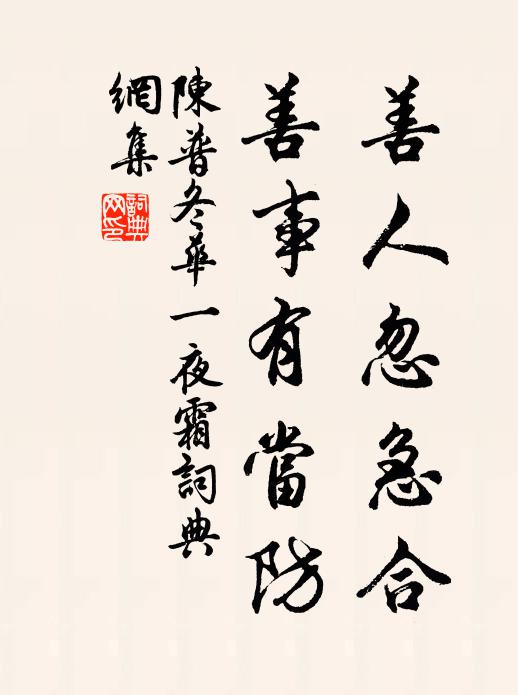 善人忽急合
善事有當防
陳普冬華一夜霜詞典
網集
詞典
网印